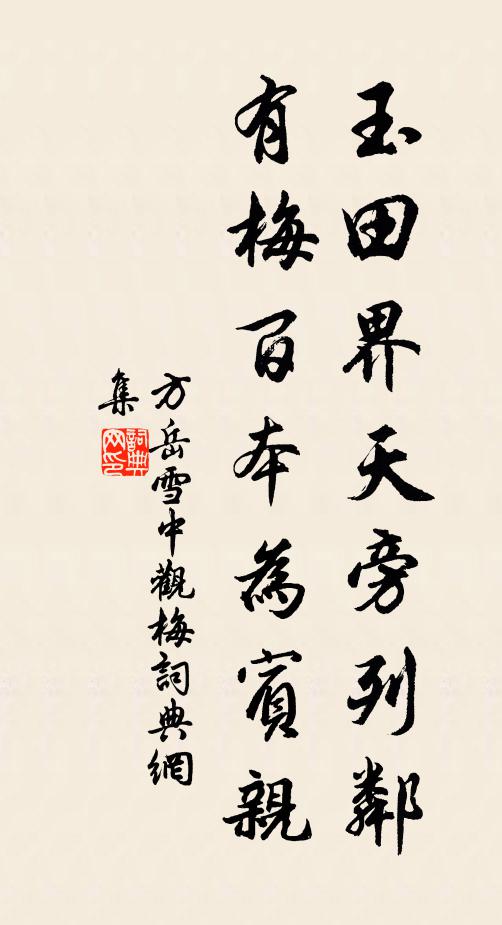 玉田界天旁列鄰
有梅百本為賓親
方岳雪中觀梅詞典網
集
詞典
网印